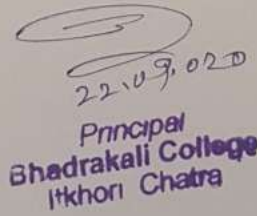 22.09.020
Principal
Bhadrakali College
Itkhori Chatra